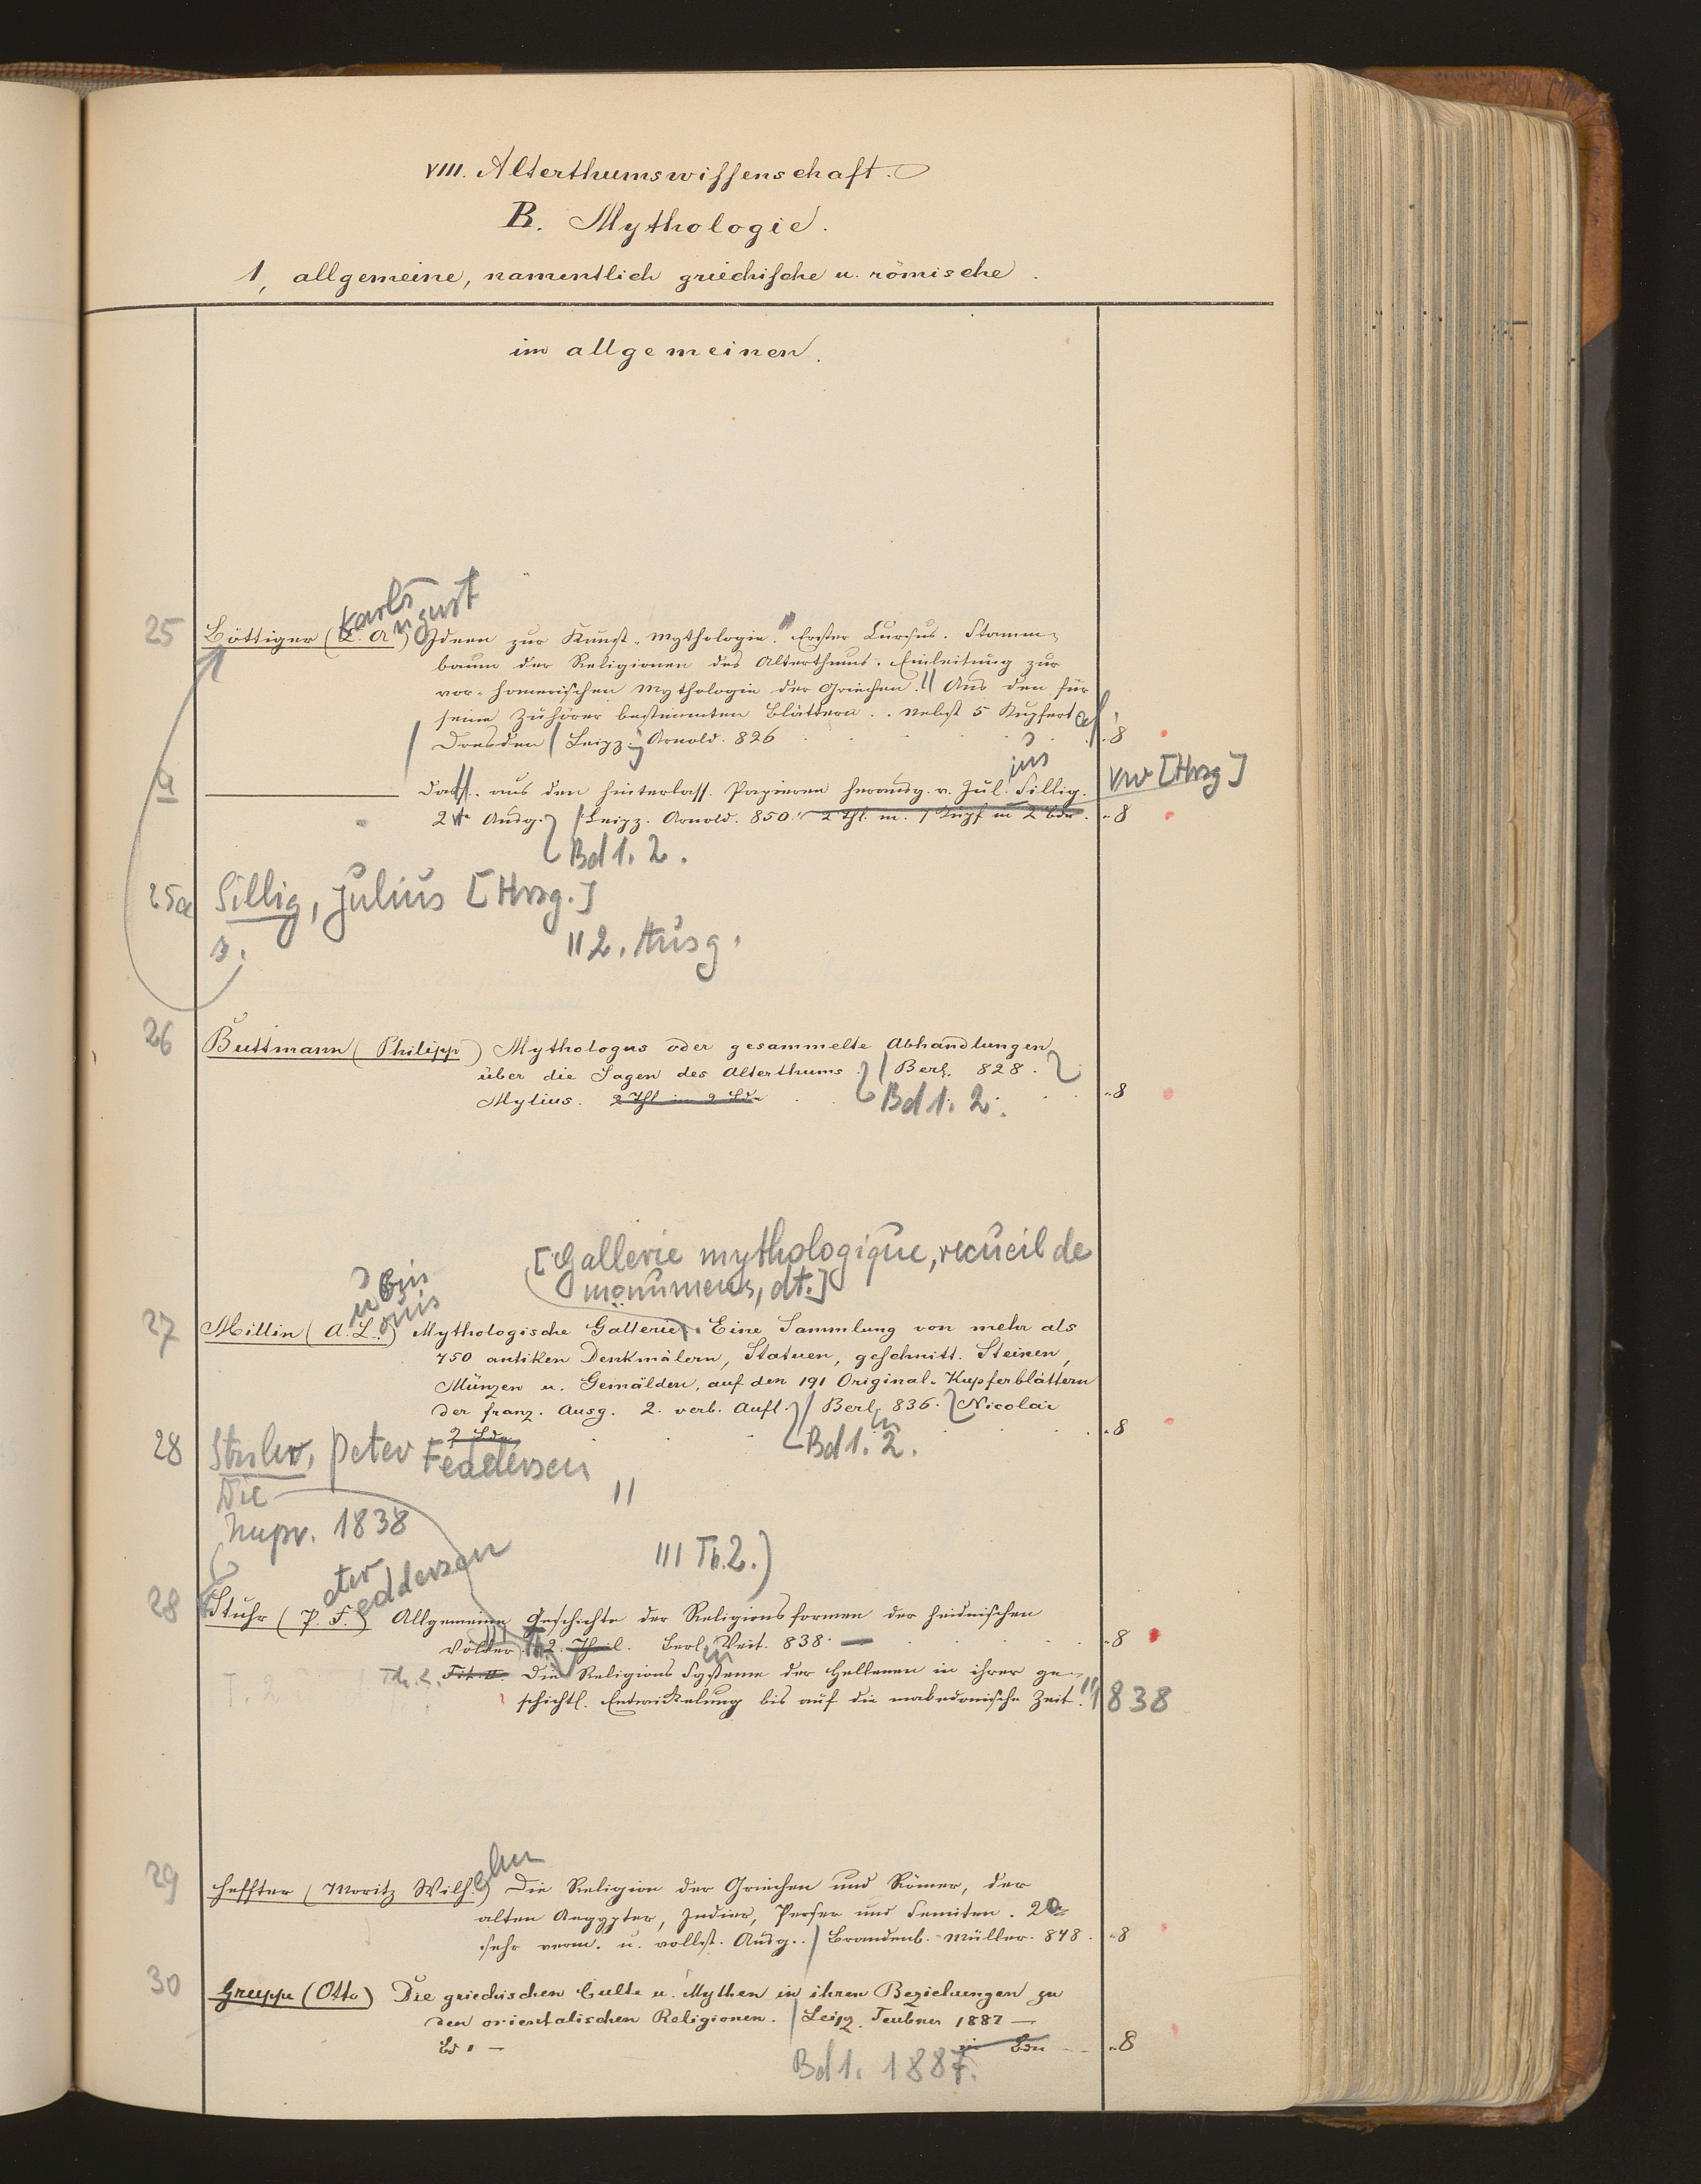 VIII. Alterthumswissenschaft.
B. Mythologie.
1, allgemeine, namentlich griechische u. römische.
im allgemeinen.
Karl August
25 Böttiger (C. A.) Ideen zur Kunst-Mythologie. Erster Cursus. Stamm-
baum der Religionen des Alterthums. Einleitung zur
vor-homerischen Mythologie der Griechen. Aus den für
seine Zuhörer bestimmten Blättern .. Nebst 5 Kupfert
Dresden / Leipz. Arnold. 826 8
ius
a Dass. aus den hinterlass. Papieren herausg. v. Jul. Sillig. VW [Hrsg]
2te Ausg. / Leipz. Arnold. 850. 2 Thl. m. 1 Kupf in 2 Bdn. 8
Bd 1. 2.
25a Sillig, Julius [Hrsg.]
s. || 2. Ausg.
26 Buttmann (Philipp) Mythologus oder gesammelte Abhandlungen
über die Sagen des Alterthums. / Berl. 828.
Mylius. 2 Thl in 2 Bdn 8
Bd 1. 2.
[Gallerie mythologique, recueil de
monumens, dt.]
ubin
ouis
27 Millin (A. L.) Mythologische Gallerie. Eine Sammlung von mehr als
750 antiken Denkmälern, Statuen, geschnitt. Steinen,
Münzen u. Gemälden, auf den 191 Original-Kupferblättern
der franz. Ausg. 2. verb. Aufl. / Berl. 836. Nicolai
2 Bdn 8
Bd 1. 2.
28 Stuhr, Peter Feddersen
Die ||
Nupr. 1838
||| Th. 2.)
eter eddersen
28 Stuhr (P. F.) Allgemeine Geschichte der Religionsformen der heidnischen
Völker. 2. Theil. Berl. Veit. 838. 8
T. 2 Th. 2. Die Religions Systeme der Hellenen in ihrer ge-
schichtl. Entwickelung bis auf die makedonische Zeit. 1838
elm
29 Heffter (Moritz Wilh.) Die Religion der Griechen und Römer, der
alten Aegypter, Indier, Perser und Semiten. 2e
sehr verm. u. vollst. Ausg. / Brandenb. Müller. 848. 8
30 Gruppe (Otto) Die griechischen Culte u. Mythen in ihren Beziehungen zu
den orientalischen Religionen. / Leipz. Teubner 1887 —
Bd 1 — in Bdn 8
Bd 1. 1887.